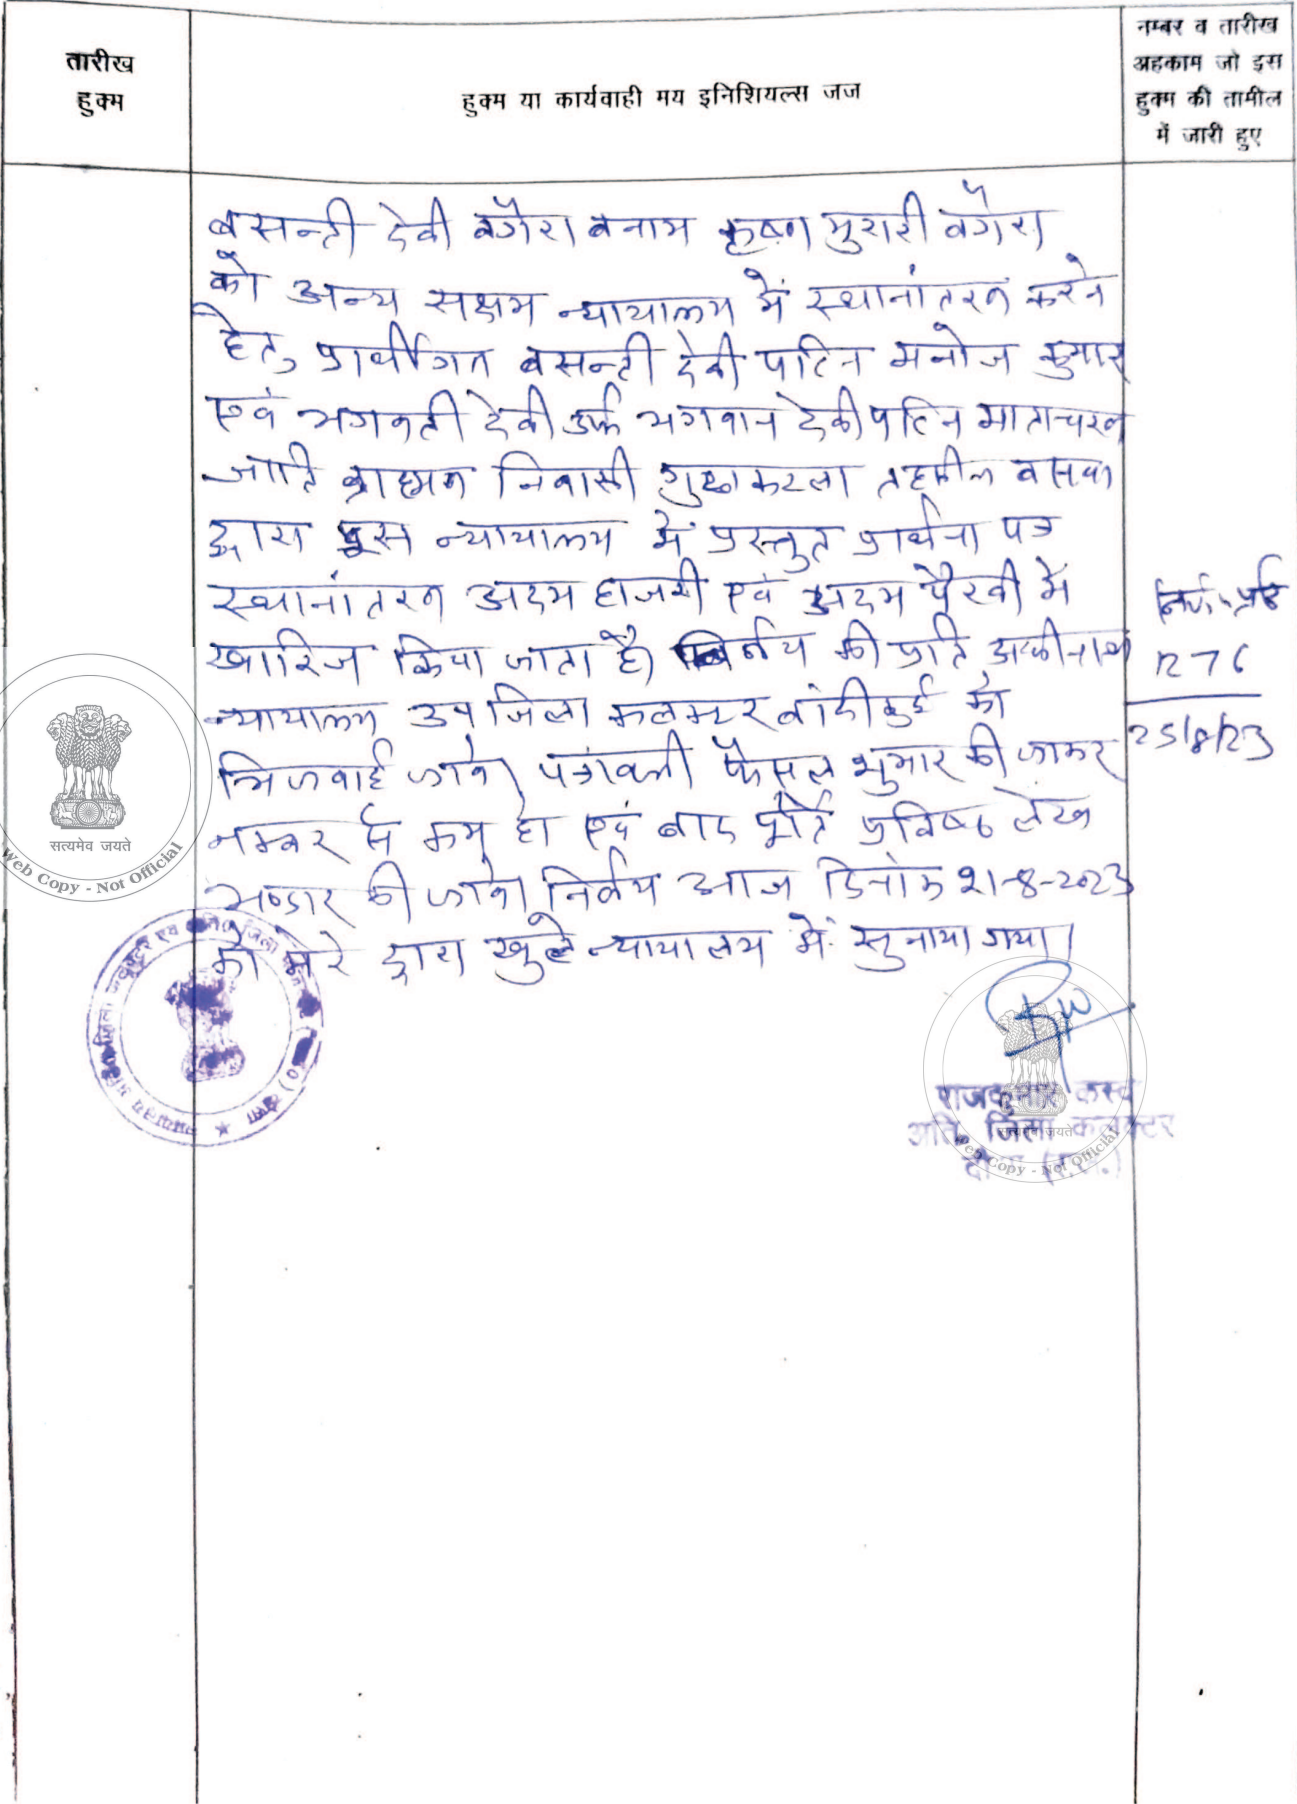 तारीख
हुक्म
हुक्म या कार्यवाही मय इनिशियल्स जज
नम्बर व तारीख
अहकाम जो इस
हुक्म की तामील
में जारी हुए
बसन्ती देवी वगैरा बनाम कृष्ण मुरारी वगैरा
को अन्य सक्षम न्यायालय में स्थानांतरण करने
हेतु प्रार्थीगण बसन्ती देवी पत्नि मनोज कुमार
एवं भगवती देवी उर्फ भगवान देवी पत्नि माताचरण
जाति ब्राह्मण निवासी गुढाकटला तहसील बसवा
द्वारा इस न्यायालय में प्रस्तुत प्रार्थना पत्र
स्थानांतरण अदम हाजरी एवं अदम पैरवी में
खारिज किया जाता है। निर्णय की प्रति अधीनस्थ
न्यायालय उप जिला कलक्टर बांदीकुई को
भिजवाई जावे। पत्रावली फैसल शुमार की जाकर
नम्बर से कम हो एवं बाद पूर्ति प्रविष्ठ लेख
भण्डार की जावे। निर्णय आज दिनांक 21-8-2023
को मेरे द्वारा खुले न्यायालय में सुनाया गया।
1276
25/8/23
राजकुमार कस्वा
अति. जिला कलक्टर
दौसा (राज.)
सत्यमेव जयते
Web Copy - Not Official
सत्यमेव जयते
Web Copy - Not Official